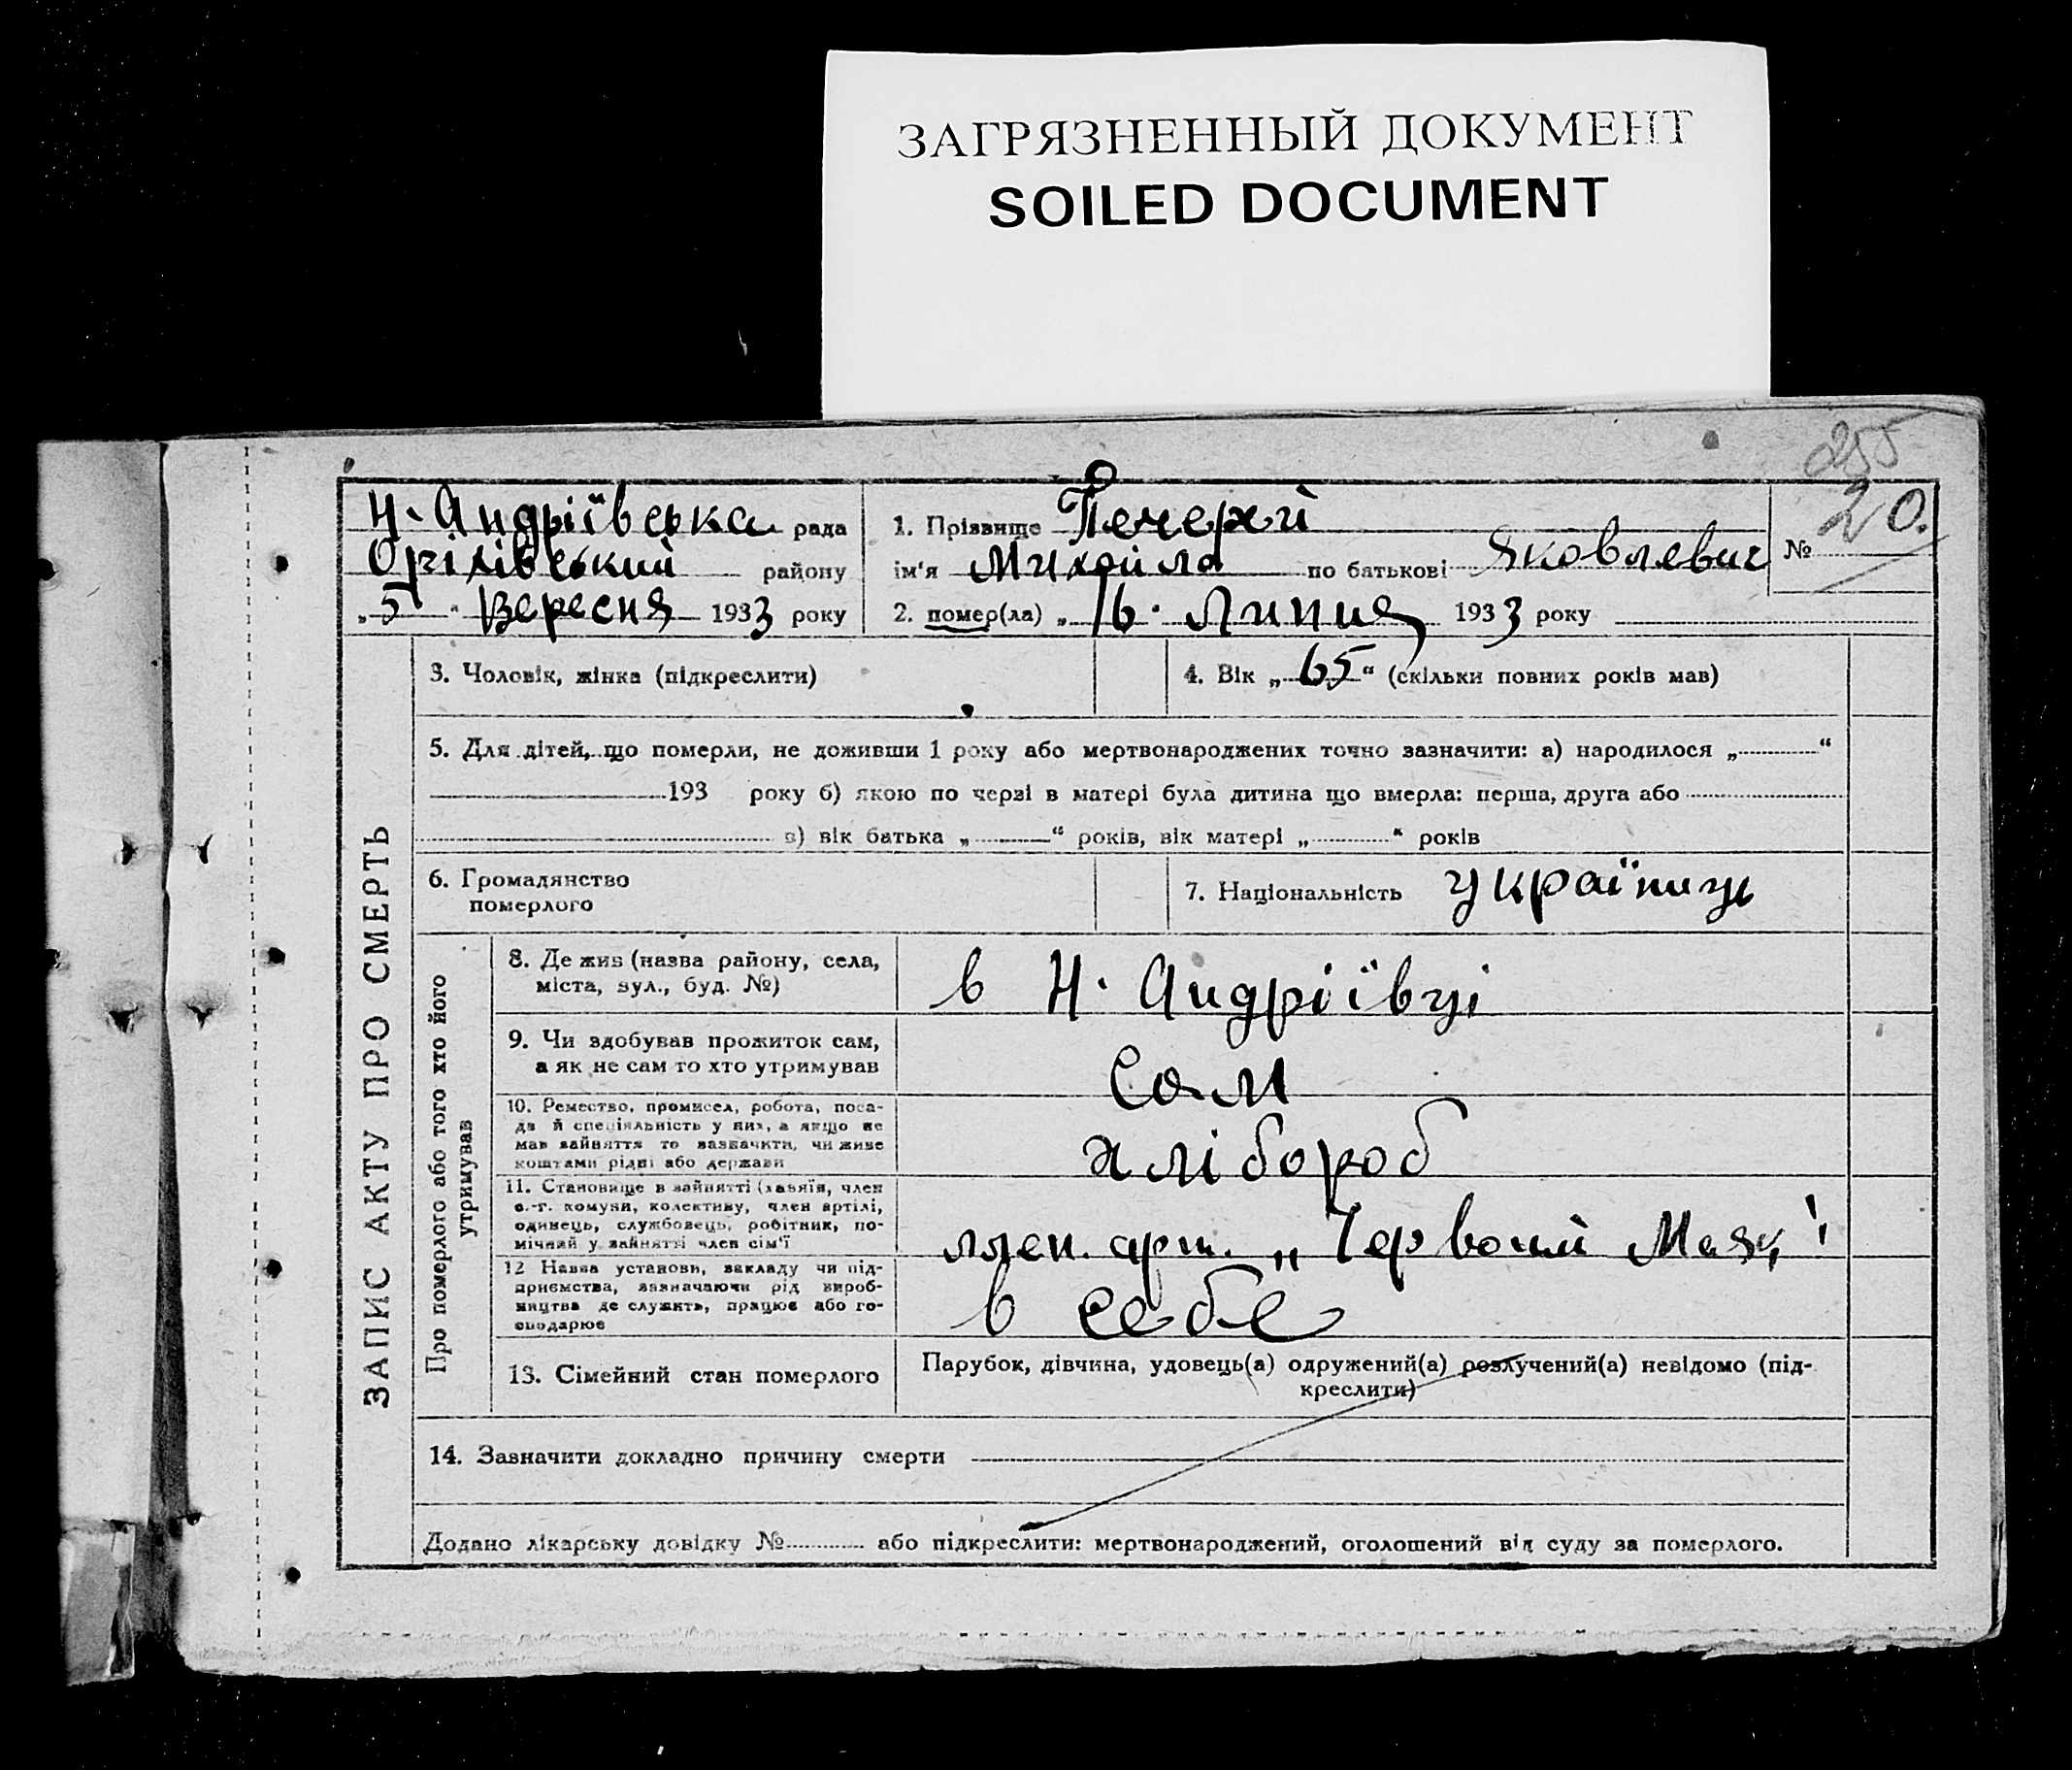 ЗАГРЯЗНЕННЫЙ ДОКУМЕНТ
SOILED DOCUMENT
255
Н. Андріївська рада
Оріхівський району
„5“ Вересня 1933 року
1. Прізвище
ім'я Михайло по батькові Яковлевич
2. помер(ла) „16. Липня 1933 року
№ 20.
ЗАПИС АКТУ ПРО СМЕРТЬ
3. Чоловік, жінка (підкреслити)
4. Вік „65“ (скільки повних років мав)
5. Для дітей, що померли, не доживши 1 року або мертвонароджених точно зазначити: а) народилося „ “
193 року б) якою по черзі в матері була дитина що вмерла: перша, друга або
в) вік батька „ “ років, вік матері „ “ років
6. Громадянство
померлого
7. Національність українець
Про померлого або того хто його
утримував
8. Де жив (назва району, села,
міста, вул., буд. №)
в Н. Андріївці
9. Чи здобував прожиток сам,
а як не сам то хто утримував
сам
10. Ремество, промисел, робота, поса-
да й спеціяльність у них, а якщо не
мав зайняття то зазначити, чи живе
коштами рідні або держави
хлібороб
11. Становище в зайнятті (хазяїн, член
с.-г. комуни, колективу, член артілі,
одинець, службовець, робітник, по-
мічний у зайнятті член сім'ї
член. арт. „Червоний Маяк“
12 Назва установи, закладу чи під-
приємства, зазначаючи рід вироб-
ництва де служить, працює або го-
сподарює
в себе
13. Сімейний стан померлого
Парубок, дівчина, удовець(а) одружений(а) розлучений(а) невідомо (під-
креслити)
14. Зазначити докладно причину смерти
Додано лікарську довідку № або підкреслити: мертвонароджений, оголошений від суду за померлого.